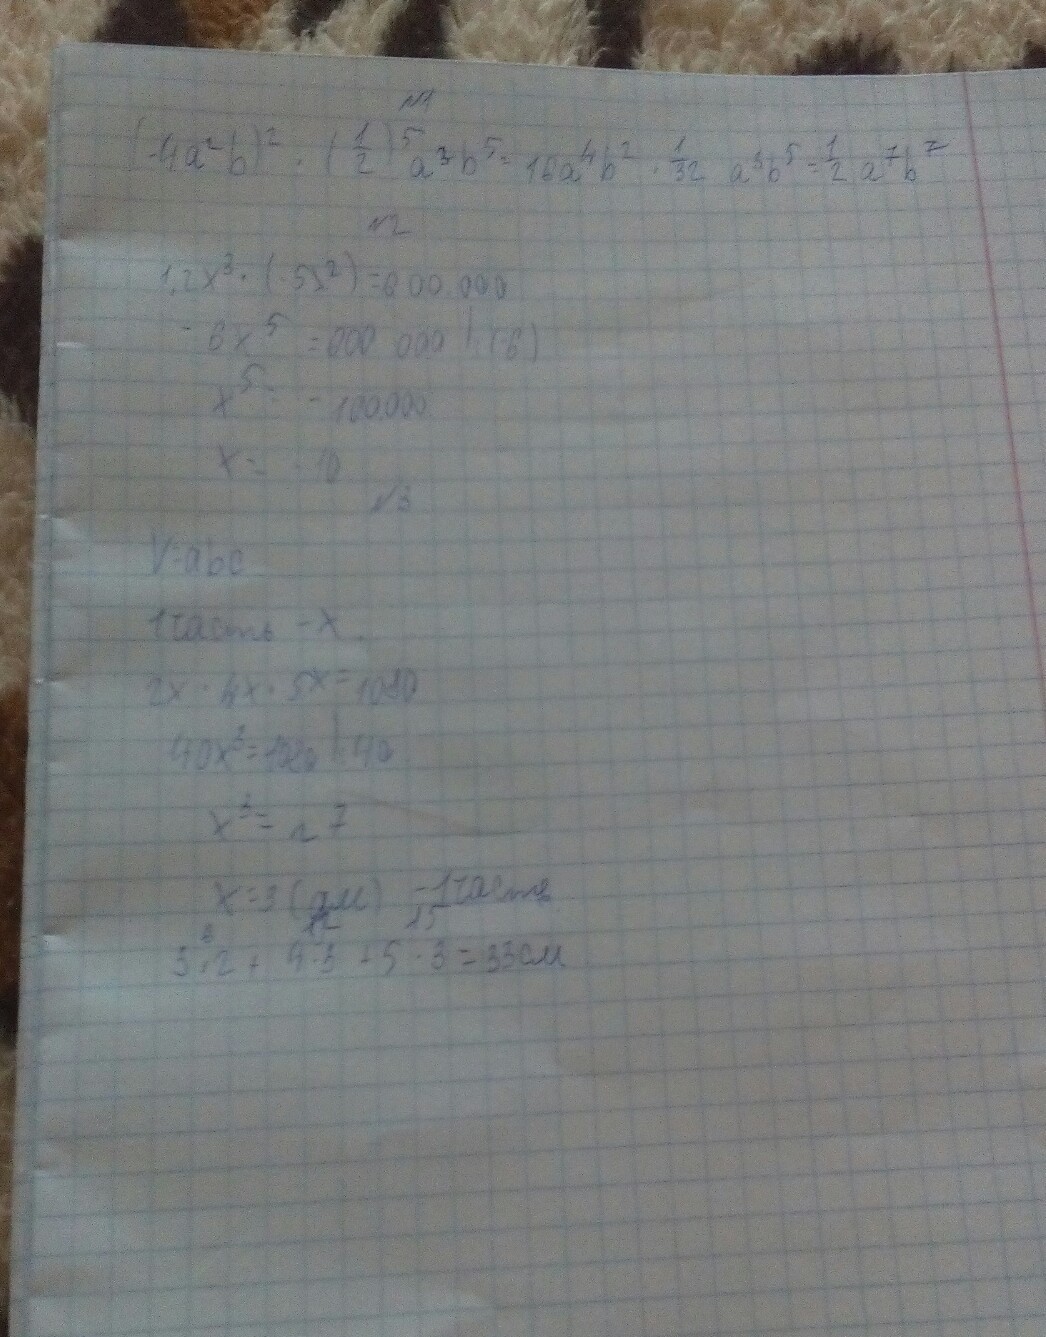 №1
(-4a²b)² · (1/2)⁵ a³b⁵ = 16a⁴b² · 1/32 a³b⁵ = 1/2 a⁷b⁷
№2
1,2x³ · (-5x²) = 600 000
-6x⁵ = 600 000 | : (-6)
x⁵ = -100 000
x = -10
№3
V=abc
1 часть - x
2x · 4x · 5x = 1080
40x³ = 1080 | : 40
x³ = 27
x = 3 (см) - 1 часть
6 12 15
3 · 2 + 4 · 3 + 5 · 3 = 33 см